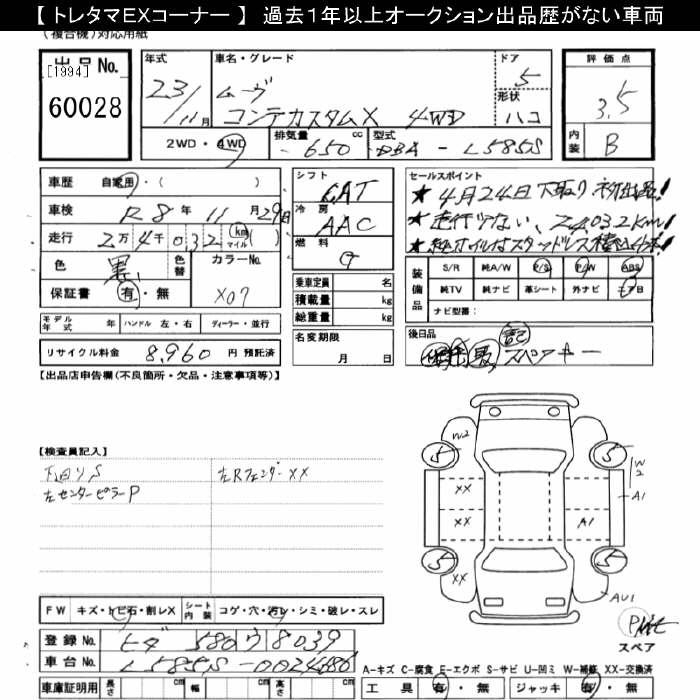 【 トレタマEXコーナー 】 過去１年以上オークション出品歴がない車両
(複合機)対応用紙
出品No.
[1994]
60028
年式 車名・グレード ドア 評価点
23/11月 ムーヴ 5 3.5
コンテカスタムX 4WD 形状 ハコ
2WD・4WD 排気量 650 cc 型式 DBA - L585S 内装 B
車歴 自家用・( )
車検 R8年 11月 29日
走行 2万4千032 km マイル ( )
色 黒 色替 カラーNo. X07
保証書 有・無
シフト CAT
冷房 AAC
燃料 G
乗車定員 名
積載量 kg
総重量 kg
名変期限 月 日
モデル年式 年 ハンドル 左・右 ディーラー・並行
リサイクル料金 8,960 円 預託済
セールスポイント
★4月24日下取り 初出品!
★走行少ない、24032km!
装備品 S/R 純A/W P/S P/W ABS
純TV 純ナビ 革シート 外ナビ エアB
ナビ型番:
後日品 保 取 記 スペアキー
【出品店申告欄(不良箇所・欠品・注意事項等)】
【検査員記入】
下回りS 左Rフェンダー XX
左センターピラーP
W2
5 5
W2
XX A1
XX A1
5 5
XX
AU1
スペア
FW キズ・トビ石・割レX シート内装 コゲ・穴・汚レ・シミ・破レ・スレ
登録No. 580 ウ 8039
車台No. L585S-0024686
車庫証明用 長さ cm 幅 cm 高さ cm
A-キズ C-腐食 E-エクボ S-サビ U-凹ミ W-補修 XX-交換済
工具 有・無 ジャッキ 有・無